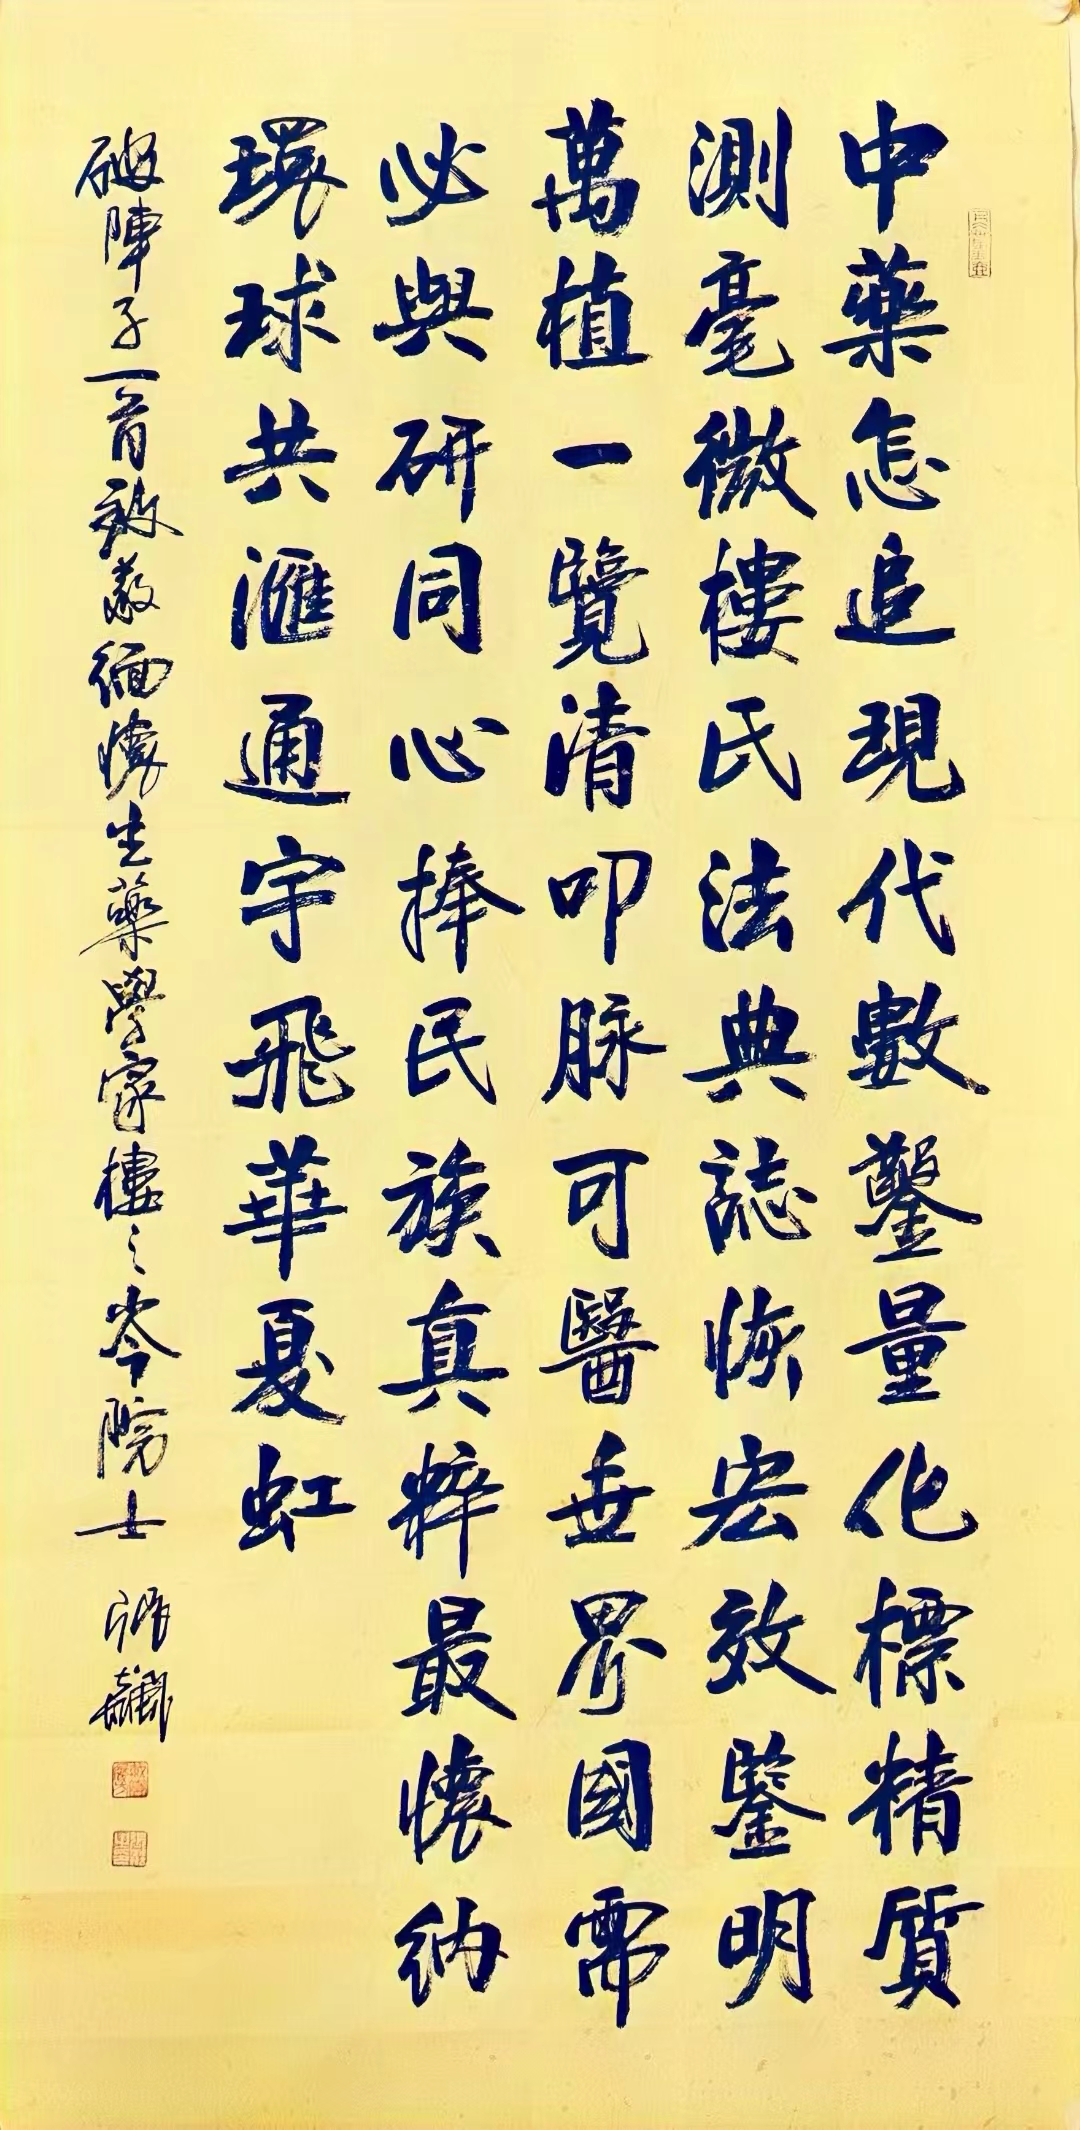 中藥怎追現代數鑿量化標精質
測毫微樓氏法典誌恢宏效鑒明
萬植一覽清叩脉可醫垂界國需
必與研同心捧民族真粹最懷納
環球共滙通宇飛華夏虹
破陣子一首致敬緬懷生藥學家樓之岑院士